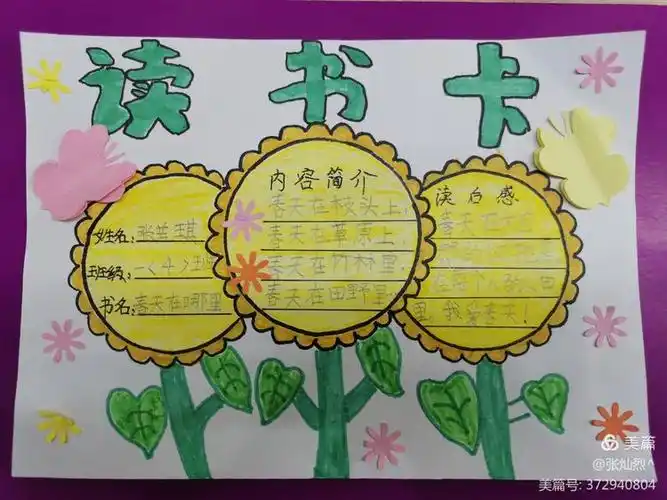 读书卡
姓名:张芸琪
班级:一(4)班
书名:春天在哪里
内容简介
春天在枝头上,
春天在草原上,
春天在竹林里,
春天在田野里
读后感
春天在
在每个人的心田
里,我爱春天!
美篇
@张灿烈^
美篇号: 372940804